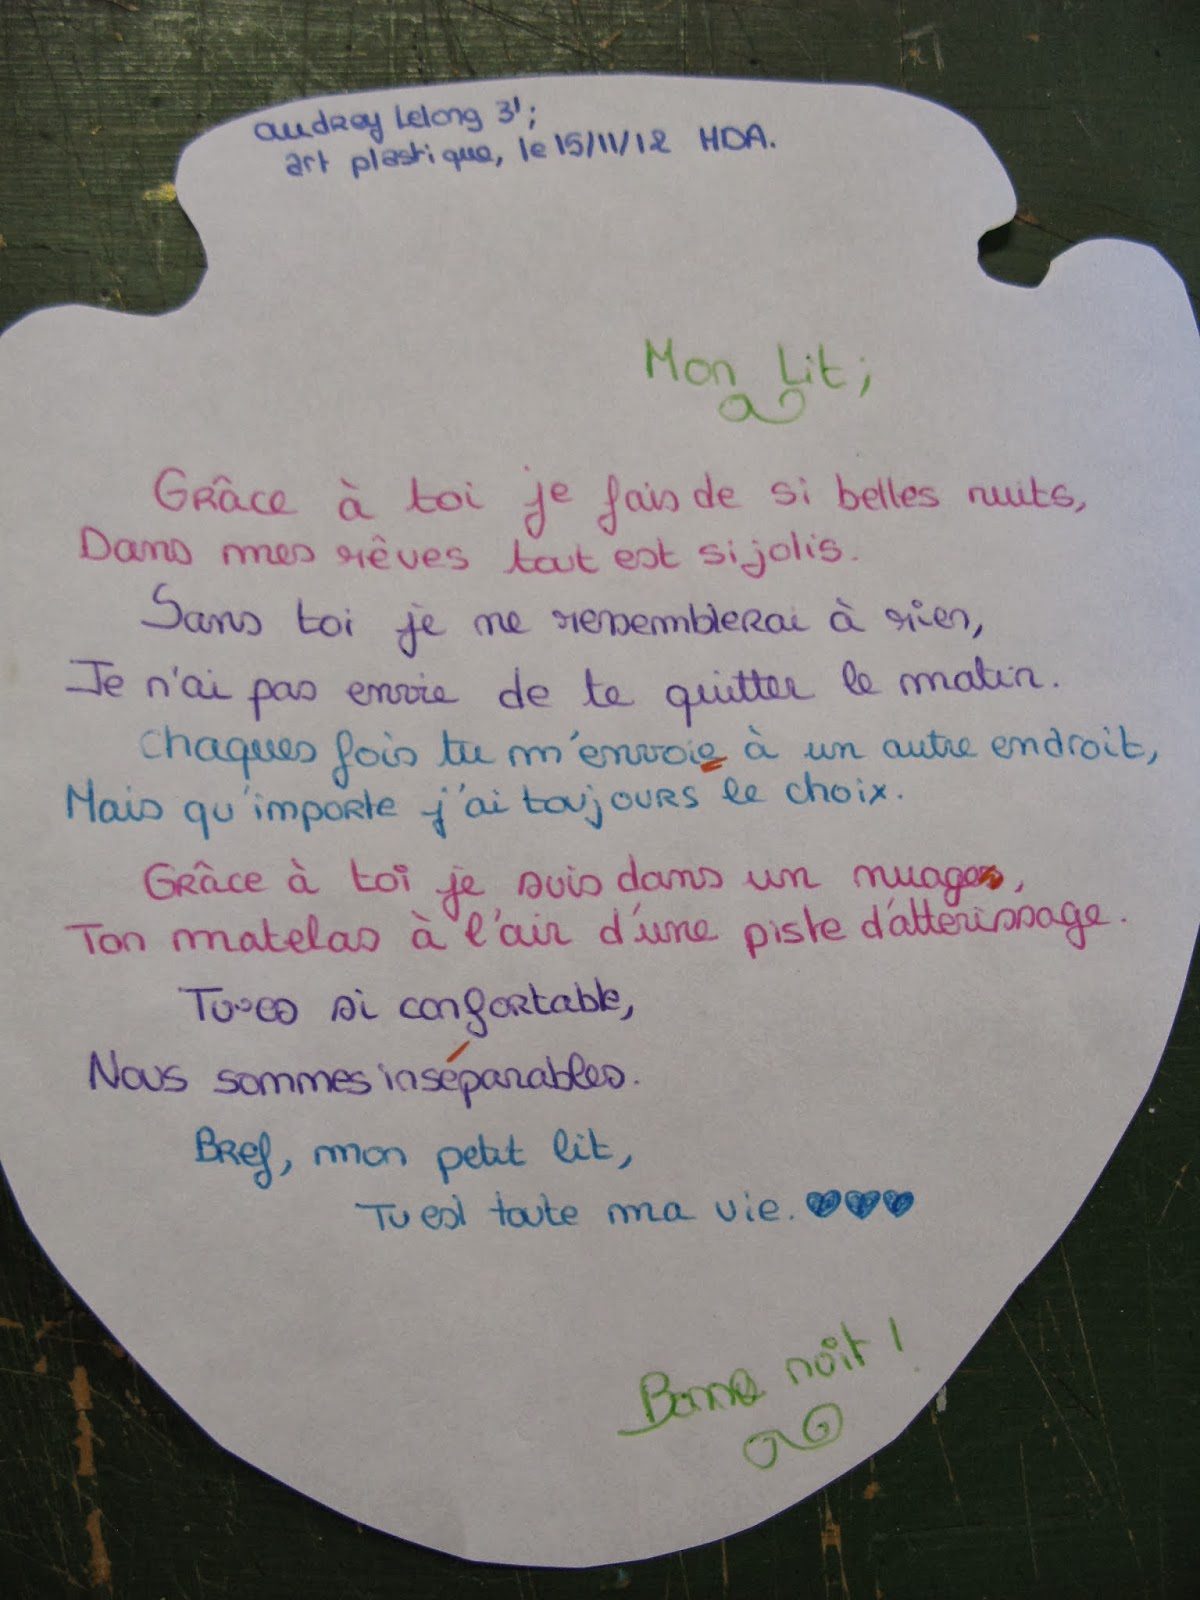 Audrey Lelong 3';
art plastique, le 15/11/12 HDA.
Mon Lit;
Grâce à toi je fais de si belles nuits,
Dans mes rêves tout est si jolis.
Sans toi je ne ressemblerai à rien,
Je n'ai pas envie de te quitter le matin.
Chaques fois tu m'envoie à un autre endroit,
Mais qu'importe j'ai toujours le choix.
Grâce à toi je suis dans un nuage,
Ton matelas à l'air d'une piste d'atterissage.
Tu es si confortable,
Nous sommes inséparables.
Bref, mon petit lit,
Tu est toute ma vie. ♥♥♥
Bonne nuit !